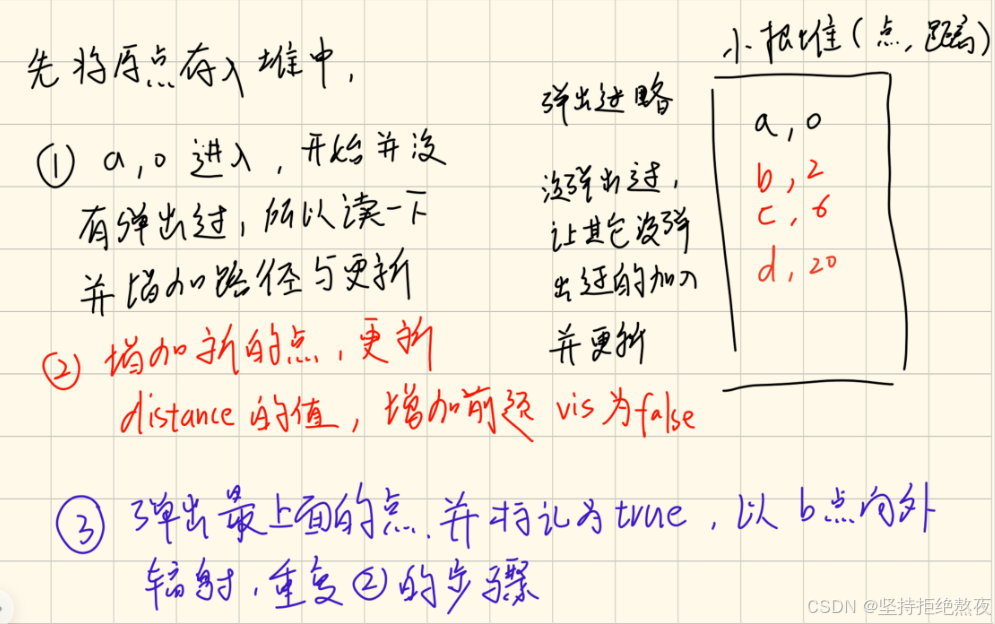 先将原点存入堆中，
① a,0 进入，开始并没
有弹出过，所以读一下
并增加路径与更新
② 增加新的点，更新
distance的值，增加前题 vis为false
③ 弹出最上面的点，并标记为true，以b点向外
辐射，重复②的步骤
弹出过略
没弹出过，
让其它没弹
出过的加入
并更新
小根堆（点，距离）
a，0
b，2
c，6
d，20
CSDN @坚持拒绝熬夜